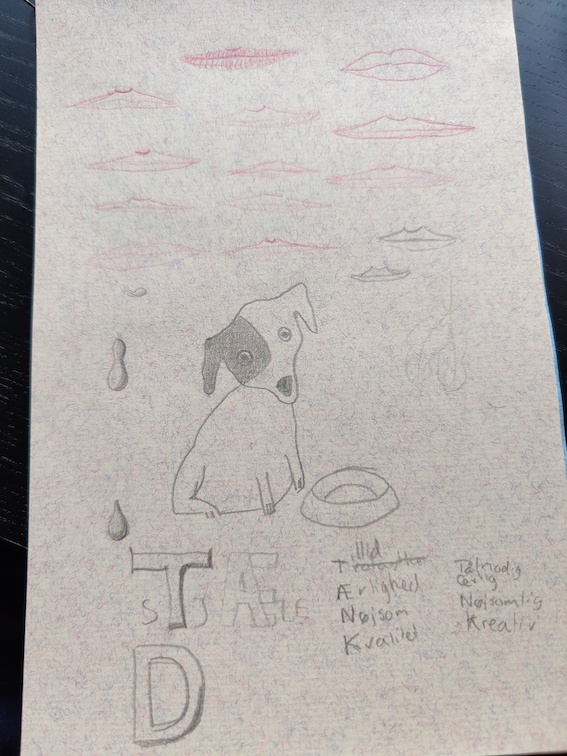 STJÆLE
D
Tillid
Ærlighed
Nøjsom
Kvalitet
Tålmodig
ærlig
Nøjsomlig
Kreativ